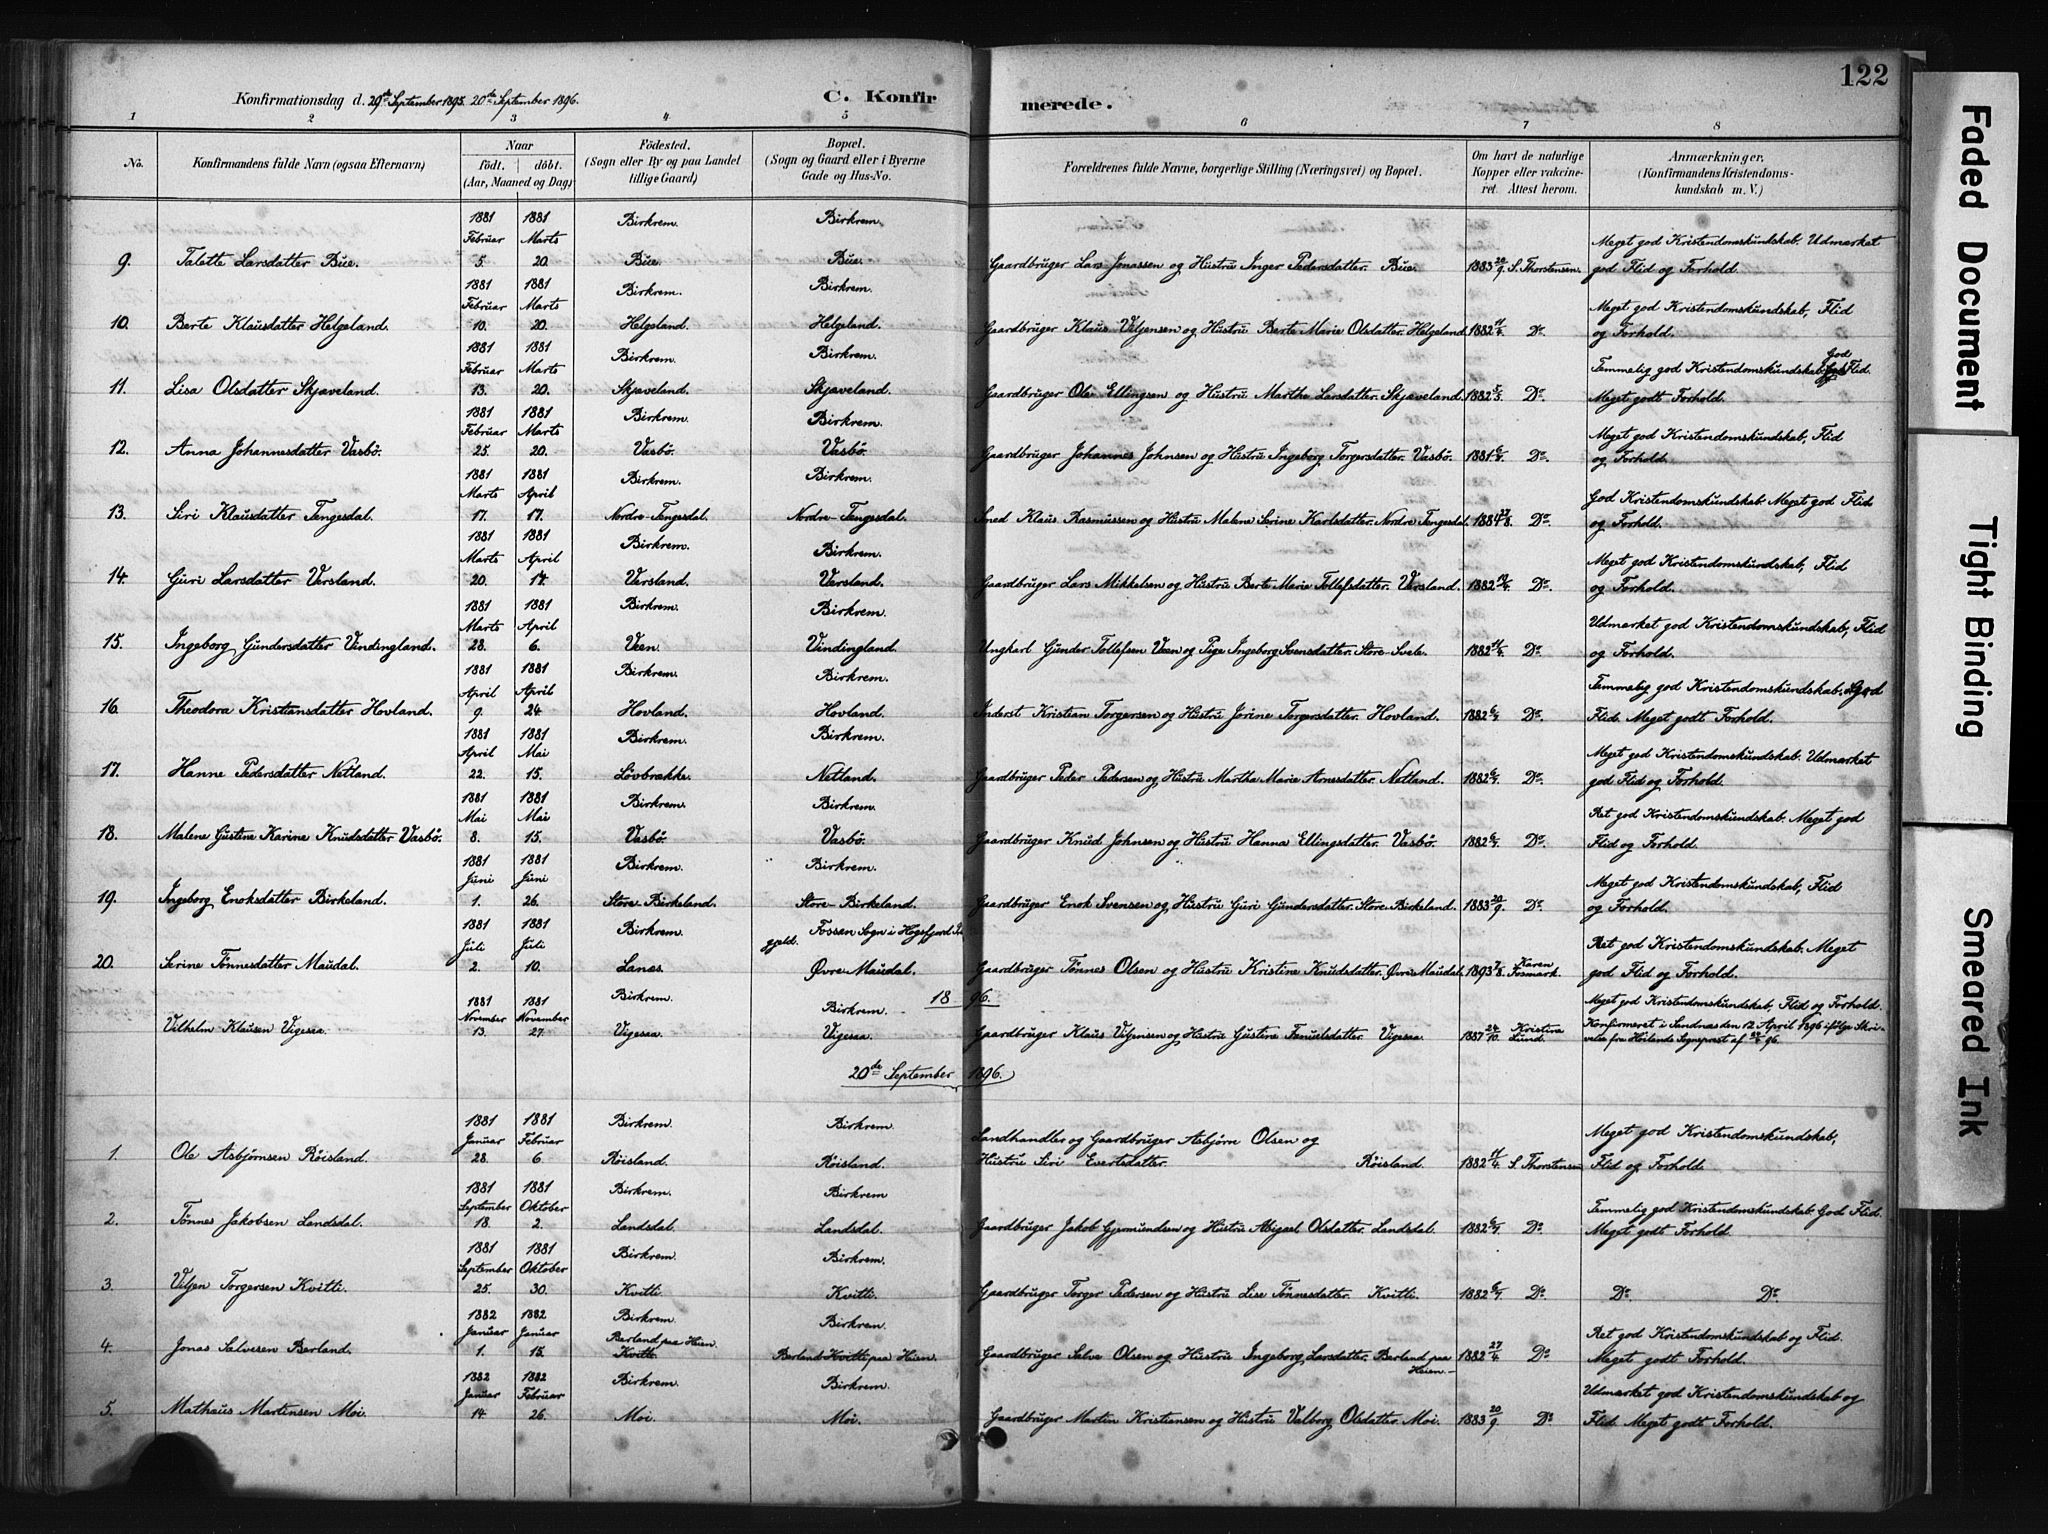 122
Konfirmationsdag d. 29de September 1895. 20de September 1896.
C. Konfirmerede.
1 2 3 4 5 6 7 8
No. Konfirmandens fulde Navn (ogsaa Efternavn) Naar födt. döbt. (Aar, Maaned og Dag) Födested. (Sogn eller By og paa Landet tillige Gaard) Bopæl. (Sogn og Gaard eller i Byerne Gade og Hus-No. Forældrenes fulde Navne, borgerlige Stilling (Næringsvei) og Bopæl. Om havt de naturlige Kopper eller vakcineret. Attest herom. Anmærkninger. (Konfirmandens Kristendomskundskab m. V.)
1881 1881 Birkrem. Birkrem.
Februar Marts Meget god Kristendomskundskab. Udmarket
9. Talette Larsdatter Büe. 5. 20. Büe. Büe. Gaardbrüger Lars Jonassen og Hustrü Inger Pedersdatter. Büe. 1883 20/9. S. Thorstensen. god Flid og Forhold.
1881 1881 Birkrem. Birkrem.
Februar Marts Meget god Kristendomskundskab, Flid
10. Berte Klausdatter Helgeland. 10. 20. Helgeland. Helgeland. Gaardbrüger Klaus Viljensen og Hustrü Berte Marie Olsdatter. Helgeland. 1882 11/4. Do. og Forhold.
1881 1881 Birkrem. Birkrem.
Februar Marts Temmelig god Kristendomskundskab. God Flid.
11. Lisa Olsdatter Skjæveland. 13. 20. Skjæveland. Skjæveland. Gaardbrüger Ole Ellingsen og Hustrü Marthe Larsdatter. Skjæveland. 1882 5/5. Do. Meget godt Forhold.
1881 1881 Birkrem. Birkrem.
Februar Marts Meget god Kristendomskundskab, Flid
12. Anna Johannesdatter Vasbö. 25. 20. Vasbö. Vasbö. Gaardbrüger Johannes Johnsen og Hustrü Ingeborg Torgersdatter. Vasbö. 1881 Do. og Forhold.
1881 1881 Birkrem. Birkrem.
Marts April God Kristendomskundskab. Meget god Flid
13. Siri Klausdatter Tengesdal. 17. 17. Nordre-Tengesdal. Nordre-Tengesdal. Smed Klaus Rasmussen og Hustrü Malene Serine Karlsdatter. Nordre Tengesdal. 1884 Do. og Forhold.
1881 1881 Birkrem. Birkrem.
Marts April Meget god Kristendomskundskab, Flid
14. Güri Larsdatter Versland. 20. 17. Versland. Versland. Gaardbrüger Lars Mikkelsen og Hustrü Berte Marie Tollefsdatter. Versland. 1882 Do. og Forhold.
1881 1881 Birkrem. Birkrem.
Marts April Udmarket god Kristendomskundskab, Flid
15. Ingeborg Gündersdatter Vindingland. 28. 6. Veen. Vindingland. Ungkarl Günder Tollefsen Veen og Pige Ingeborg Svensdatter. Store-Svele. 1882 11/4. Do. og Forhold.
1881 1881 Birkrem. Birkrem.
April April Temmelig god Kristendomskundskab. God
16. Theodora Kristiansdatter Hovland. 9. 24. Hovland. Hovland. Inderst Kristian Torgersen og Hustrü Jorine Torgersdatter. Hovland. 1882 6/7. Do. Flid. Meget godt Forhold.
1881 1881 Birkrem. Birkrem.
April Mai Meget god Kristendomskundskab. Udmarket
17. Hanne Pedersdatter Netland. 22. 15. Løvbrække. Netland. Gaardbrüger Peder Pedersen og Hustrü Martha Marie Arnesdatter. Netland. 1882 6/7. Do. god Flid og Forhold.
1881 1881 Birkrem. Birkrem.
Mai Mai Ret god Kristendomskundskab. Meget god
18. Malene Güstine Karine Knüdsdatter Vasbö. 8. 15. Vasbö. Vasbö. Gaardbrüger Knüd Johnsen og Hustrü Hanna Ellingsdatter. Vasbö. 1882 6/7. Do. Flid og Forhold.
1881 1881 Birkrem. Birkrem.
Jüni Jüni Meget god Kristendomskundskab, Flid
19. Ingeborg Enoksdatter Birkeland. 1. 26. Store-Birkeland. Store-Birkeland. Gaardbrüger Enok Svensen og Hustrü Güri Gündersdatter. Store-Birkeland. 1883 20/9. Do. og Forhold.
1881 1881 Birkrem. Fossan Sogn i Høgsfjord
Jüli Jüli gjeld. Ret god Kristendomskundskab. Meget
20. Serine Tönnesdatter Maudal. 2. 10. Lanes. Øvre-Maudal. Gaardbrüger Tønnes Olsen og Hustrü Kristine Knüdsdatter. Øvre Maudal. 1893 7/8. Karen Fosmark. god Flid og Forhold.
1896.
1881 1881 Birkrem. Birkrem. Meget god Kristendomskundskab, Flid og Forhold.
November November Konfirmeret i Sandnæs den 12 April 1896 ifølge Skri-
Vilhelm Klausen Vigesaa. 13. 27. Vigesaa. Vigesaa. Gaardbrüger Klaus Viljensen og Hustrü Güstine Tønnesdatter Vigesaa. 1887 24/10. Kristine Lund. velse fra Høilands Sogneprest af 96.
20de September 1896.
1881 1881 Birkrem. Birkrem.
Januar Februar Landhandler og Gaardbrüger Asbjørn Olsen og Meget god Kristendomskundskab,
1. Ole Asbjørnsen Röisland. 28. 6. Röisland. Röisland. Hustrü Siri Evertsdatter. Röisland. 1882 11/4. S. Thorstensen Flid og Forhold.
1881 1881 Birkrem. Birkrem
September Oktober Temmelig god Kristendomskundskab. God Flid.
2. Tønnes Jakobsen Landsdal. 18. 2. Landsdal. Landsdal. Gaardbrüger Jakob Gjermündsen og Hustrü Abigael Olsdatter. Landsdal. 1882 6/7. Do. Meget godt Forhold.
1881 1881 Birkrem. Birkrem.
September Oktober
3. Viljen Torgersen Kvitli. 25. 30. Kvitli. Kvitli. Gaardbrüger Torger Pedersen og Hustrü Lise Tønnesdatter. Kvitli. 1882 6/7. Do. Do. Do.
1882 1882 Birkrem. Birkrem.
Januar Januar Berland paa Heien Ret god Kristendomskundskab og Flid.
4. Jonas Salvesen Berland. 1. 15. Kvitli. Berland-Kvitli paa Heien. Gaardbrüger Salve Olsen og Hustrü Ingeborg Larsdatter. Berland paa Heien. 1882 27/4. Do Meget godt Forhold.
1882 1882 Birkrem. Birkrem.
Januar Februar Udmarket god Kristendomskundskab og
5. Mathaüs Martinsen Moi. 14. 26. Moi. Moi. Gaardbrüger Martin Kristiansen og Hustrü Valborg Olsdatter. Moi. 1883 20/9. Do Flid. Meget godt Forhold.
Faded Document
Tight Binding
Smeared Ink